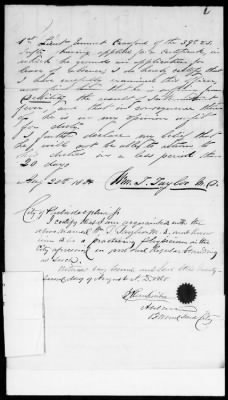 1st Lieut Emmet Crawford of the 39th U.S.
Infty having applied for a certificate on
which to ground an application for
leave of absence I do hereby certify that
I have carefully examined this officer
and find that he is
the
fever and that in consequence there
of, he is in my opinion unfit
for duty.
I further declare my belief that
he will not be able to return to
his duties in a less period than
20 days
Aug 20th
Wm. T. Taylor M.D.
City of Philadelphia ss
I certify that I am acquainted with the
above named Wm T. Taylor M.D. and know
him as a practicing Physician in the
City aforesaid in good and Regular Standing
as such.
Witness my hand and Seal this twenty
second day of August A.D.
Alderman